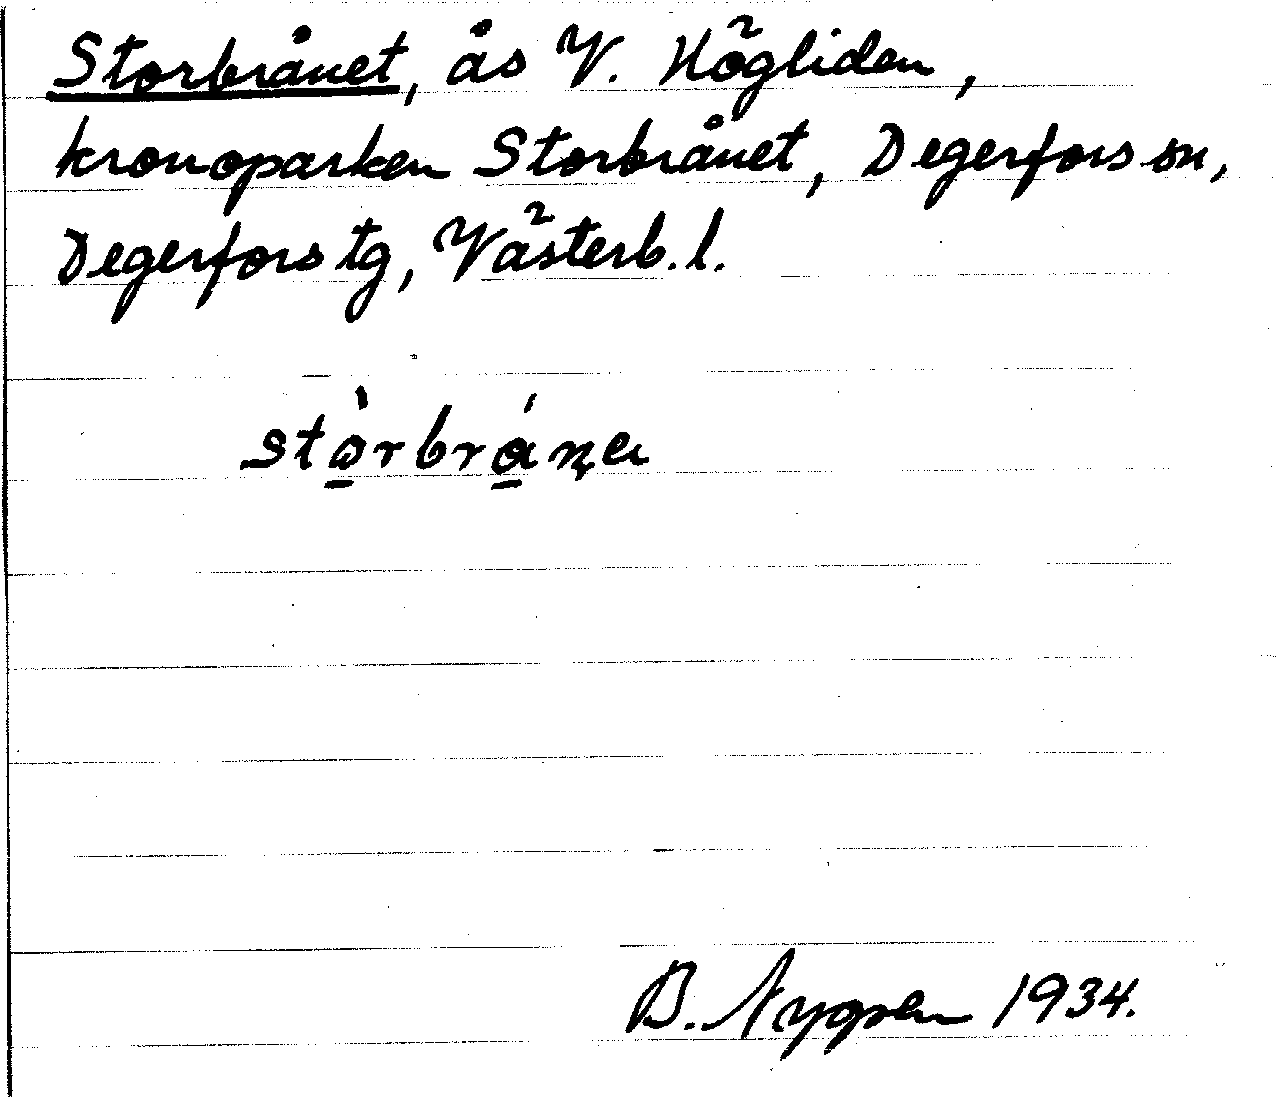 Storbrånet, ås V. Högliden,
kronoparken Storbrånet, Degerfors sn,
Degerfors tg, Västerb. l.
stò̲rbrá̲n̨a
B. Nygren 1934.